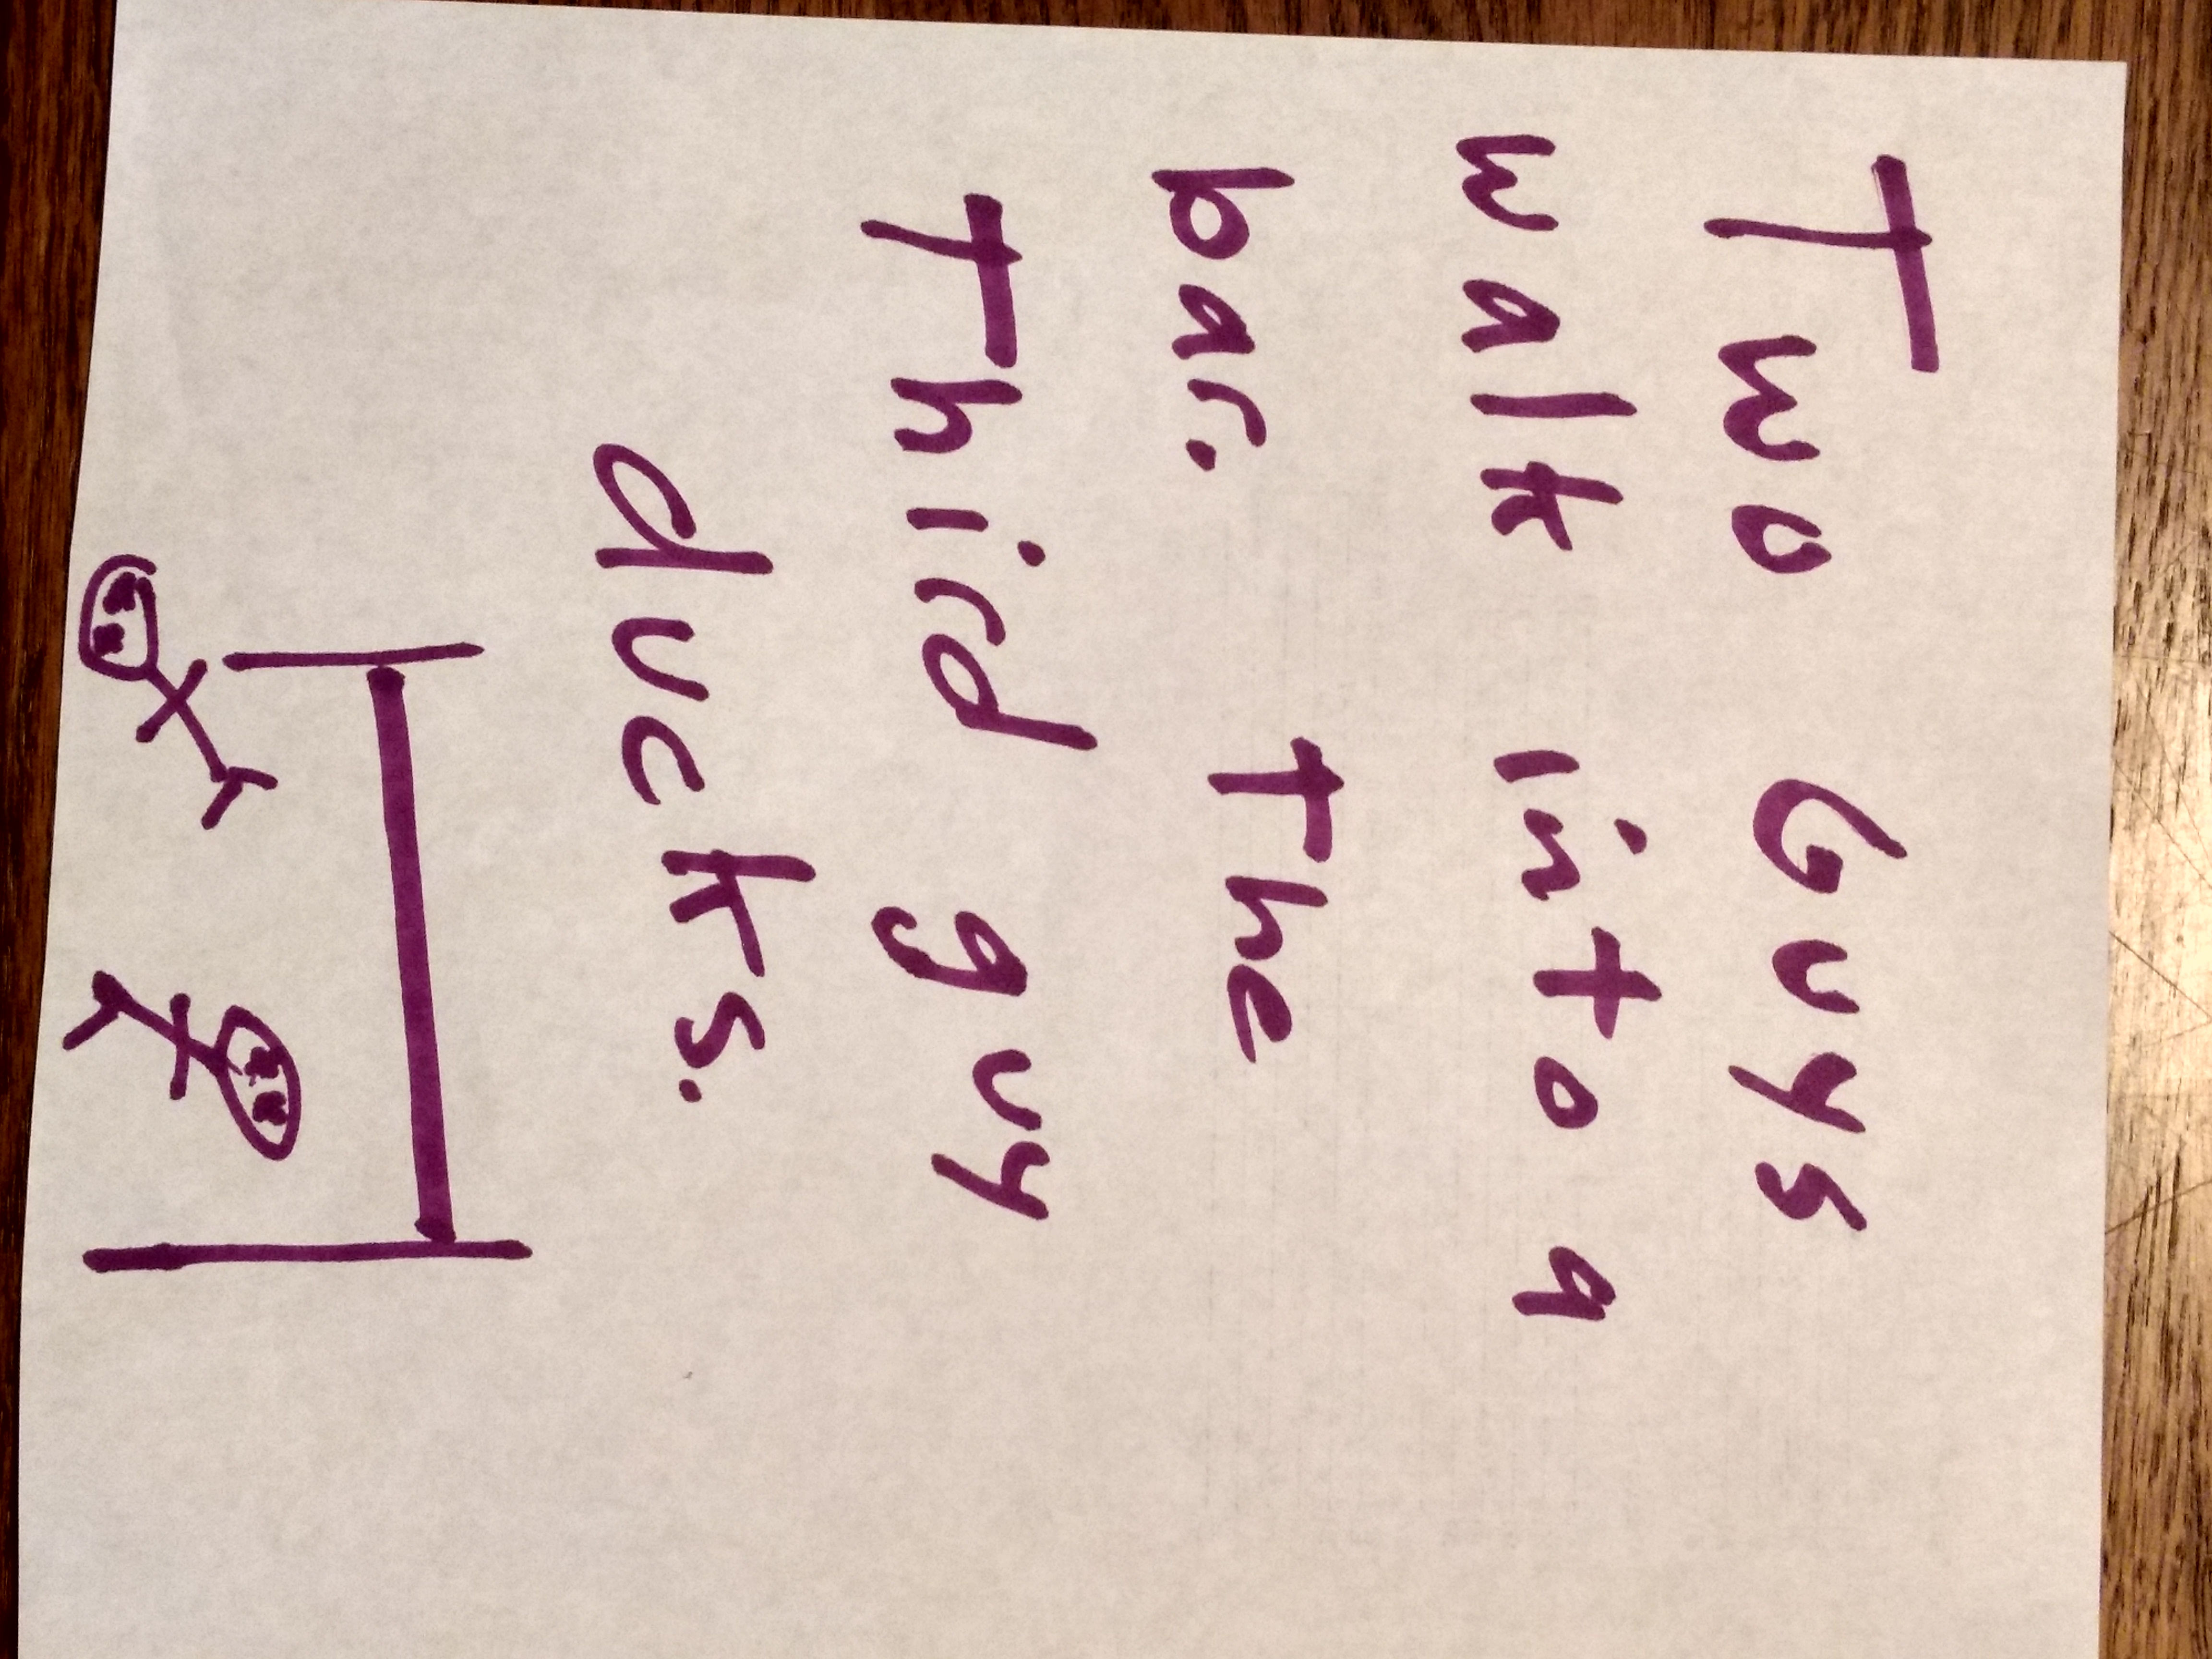 Two Guys
walk into a
bar. The
Third guy
ducks.